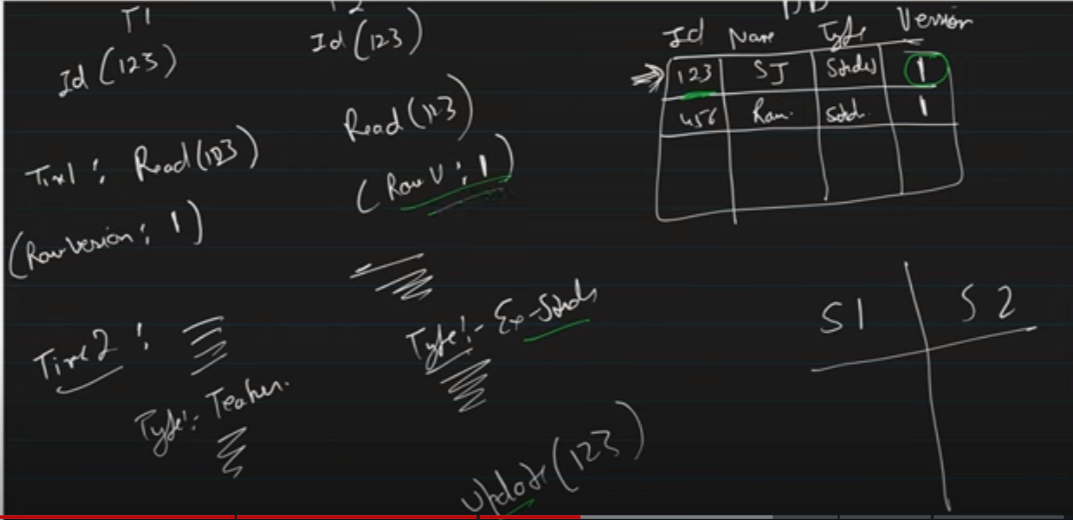 T1
Id (123)
Time1 : Read (123)
(Row Version : 1)
Time2 :
Type :- Teacher.
T2
Id (123)
Read (123)
(Row V : 1)
Type :- Ex-Stude
Update (123)
DB
Id Name Type Version
123 SJ 1
456 Ram. 1
S1 S2